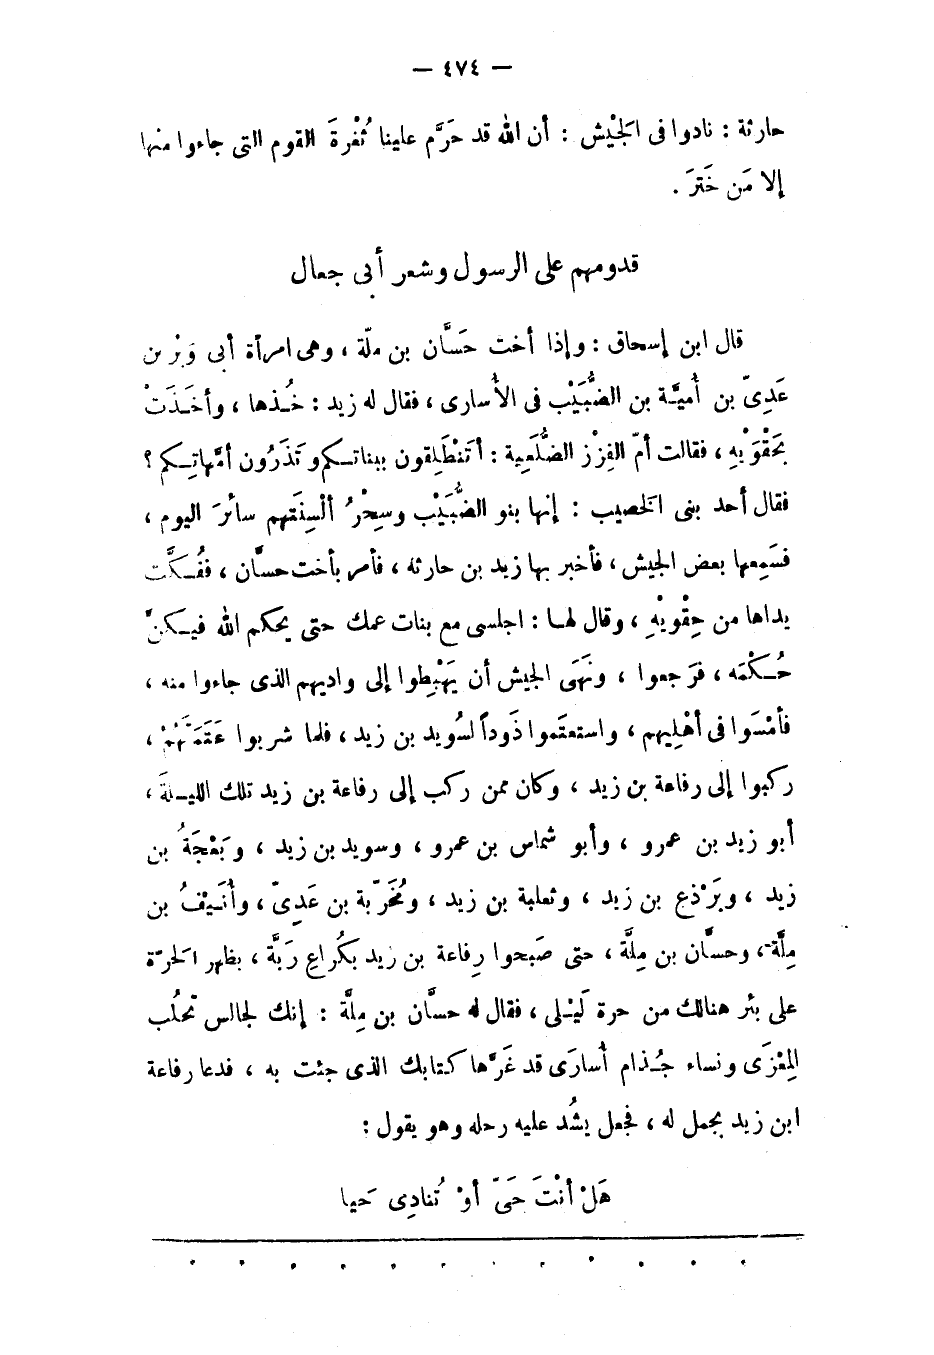 — ٤٧٤ —
حارثة : نادوا فى الجَيْش : أن الله قد حَرَّم علينا ثُغْرةَ القوم التى جاءوا منها
إلا مَن خَتَرَ .
قدومهم على الرسول وشعر أبى جعال
قال ابن إسحاق : وإذا أخت حَسَّان بن ملّة ، وهى امرأة أبى وَبْر بن
عَدِىّ بن أُميَّة بن الضُّبَيْب فى الأُسارى ، فقال له زيد : خُذها ، وأخَذَتْ
بحَقْوَيْهِ ، فقالت أمّ الفِزْز الضُّلَعِية : أتَنْطَلِقون ببناتكم وتَذَرُون أمَّهاتِكم ؟
فقال أحد بنى الخصيب : إنها بنو الضُّبَيْب وسِحْرُ ألْسِنَتهم سائرَ اليوم ،
فسَمِعها بعض الجيش ، فأخبر بها زيد بن حارثه ، فأمر بأخت حسَّان ، ففُكَّت
يداها من حِقْويْهِ ، وقال لها : اجلسى مع بنات عمك حتى يحكم الله فيكنّ
حُكْمَه ، فرَجعوا ، ونَهَى الجيش أن يَهْبِطوا إلى واديهم الذى جاءوا منه ،
فأمْسَوا فى أهْلِيهم ، واستعتَموا ذَوداً لسُويد بن زيد ، فلما شربوا عَتَمَتَهُمْ ،
ركبوا إلى رفاعة بن زيد ، وكان ممن ركب إلى رفاعة بن زيد تلك الليلةَ ،
أبو زيد بن عمرو ، وأبو شماس بن عمرو ، وسويد بن زيد ، وبَعْجَةُ بن
زيد ، وبَرْذع بن زيد ، وثعلبة بن زيد ، ومُخَرّبة بن عَدِىّ ، وأُنَيْفُ بن
مِلَّة ، وحسَّان بن مِلَّة ، حتى صَبحوا رِفاعة بن زيد بكُراعِ رَبَّة ، بظهر الحرّة
على بئر هنالك من حرة لَيْلى ، فقال له حسَّان بن مِلَّة : إنك لجالس تحلُب
المِعْزَى ونساء جُذام أُسارَى قد غَرَّها كتابك الذى جئت به ، فدعا رفاعة
ابن زيد بجمل له ، فجعل يشُد عليه رحله وهو يقول :
هَلْ أنْتَ حَىّ أوْ تُنادِى حَيا